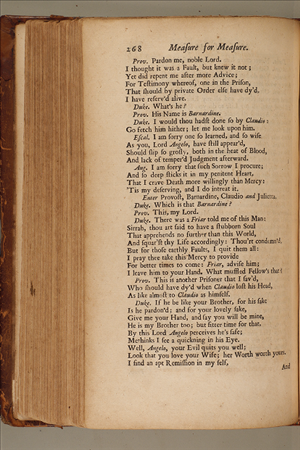 268 Measure for Measure.
Prov. Pardon me, noble Lord.
I thought it was a Fault, but knew it not;
Yet did repent me after more Advice;
For Testimony whereof, one in the Prison,
That should by private Order else have dy'd,
I have reserv'd alive.
Duke. What's he?
Prov. His Name is Barnardine.
Duke. I would thou hadst done so by Claudio:
Go fetch him hither; let me look upon him.
Escal. I am sorry one so learned, and so wise
As you, Lord Angelo, have still appear'd,
Should slip so grosly, both in the heat of Blood,
And lack of temper'd Judgment afterward.
Ang. I am sorry that such Sorrow I procure;
And so deep sticks it in my penitent Heart,
That I crave Death more willingly than Mercy:
'Tis my deserving, and I do intreat it.
Enter Provost, Barnardine, Claudio and Julietta.
Duke. Which is that Barnardine?
Prov. This, my Lord.
Duke. There was a Friar told me of this Man:
Sirrah, thou art said to have a stubborn Soul
That apprehends no further than this World,
And squar'st thy Life accordingly: Thou'rt condemn'd;
But for those earthly Faults, I quit them all:
I pray thee take this Mercy to provide
For better times to come: Friar, advise him;
I leave him to your Hand. What muffled Fellow's that?
Prov. This is another Prisoner that I sav'd,
Who should have dy'd when Claudio lost his Head,
As like almost to Claudio as himself.
Duke. If he be like your Brother, for his sake
Is he pardon'd; and for your lovely sake,
Give me your Hand, and say you will be mine,
He is my Brother too; but fitter time for that.
By this Lord Angelo perceives he's safe;
Methinks I see a quickning in his Eye.
Well, Angelo, your Evil quits you well:
Look that you love your Wife; her Worth worth yours.
I find an apt Remission in my self,
And